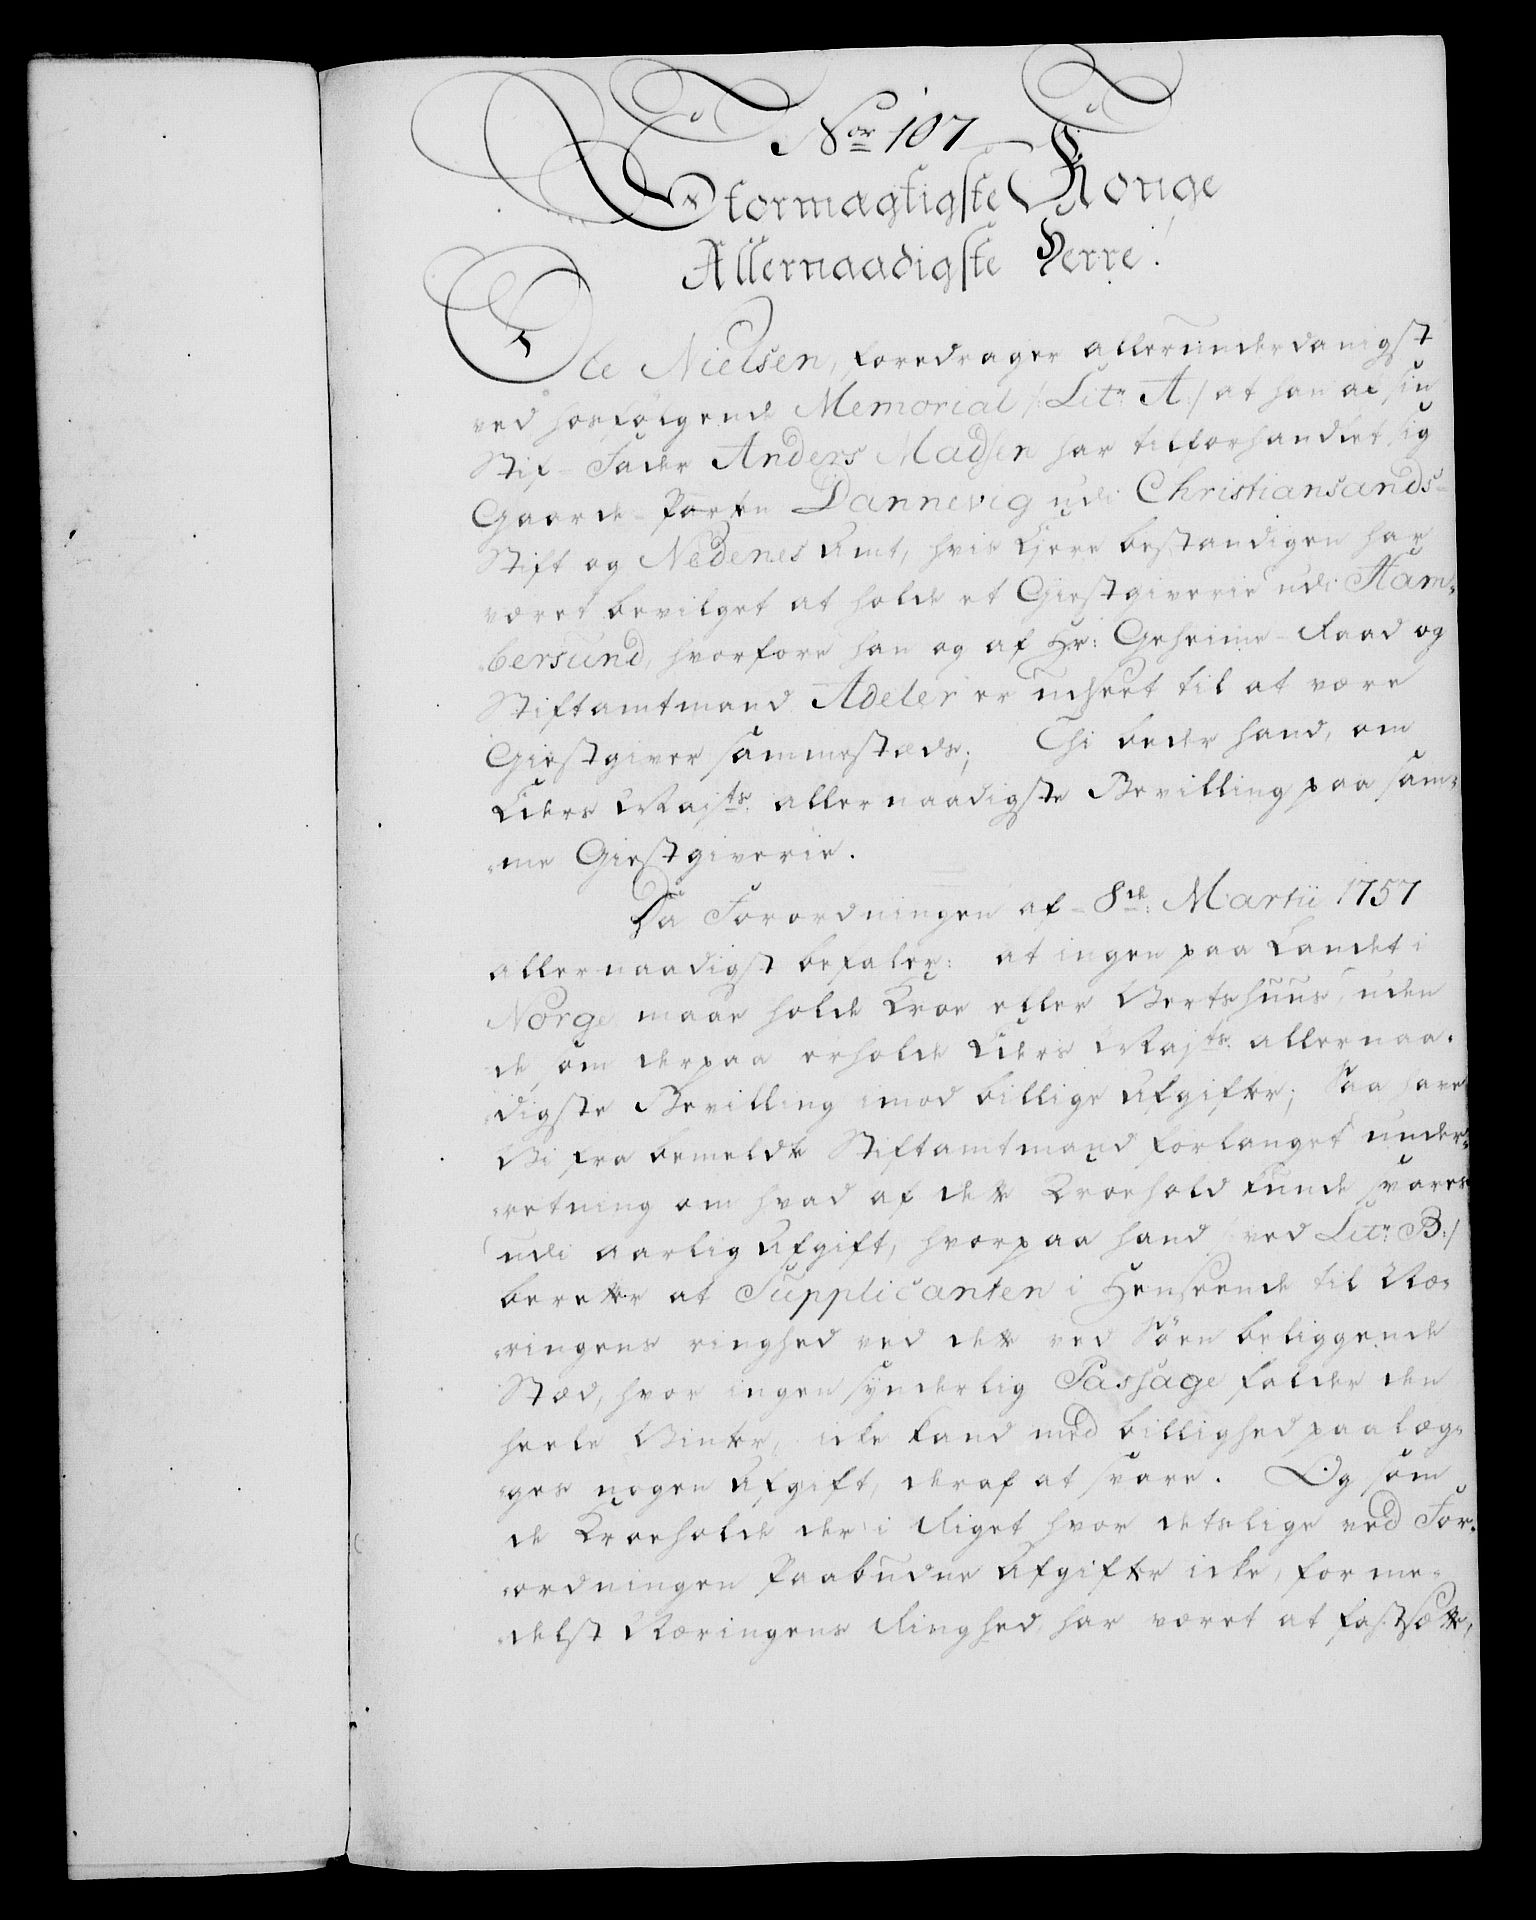 Nor 107
Stormægtigste Konge
Allernaadigste Herre!
Ole Nielsen, foredrager allerunderdanigst
ved hosfølgende Memorial /: Litr A:/ at han af sin
Stif-Fader Anders Madsen har tilforhandlet sig
Gaarde-Parten Dannevig udi Christiansands-
Stift og Nedenes Amt, hvis Ejere bestandigen har
været bevilget at holde et Giestgiverie udi Ham-
bersund, hvorfore han og af Hr: Geheime-Raad og
Stiftamtmand Adeler er udseet til at være
Giestgiver sammesteds; Thi beder hand, om
Eders Majts allernaadigste Bevilling paa sam-
me Giestgiverie.
Da Forordningen af 8de Martii 1757
allernaadigst befaler: at ingen paa Landet i
Norge maae holde Kroe eller Vertshuus, uden
de som derpaa erholde Eders Majts allernaa-
digste Bevilling imod billige Afgifter; Saa have
Vi fra bemeldte Stiftamtmand forlanget under-
retning om hvad af dette Kroehold kunde svares
udi aarlig Afgift, hvorpaa hand /: ved Litr B:/
beretter at Supplicanten i Henseende til Næ-
ringens ringhed ved dette ved Søen beliggende
Stæd, hvor ingen synderlig Passage falder den
heele Vinter, icke kand med billighed paalæg-
ges nogen Afgift, deraf at svare. Og som
de Kroeholde der i Riget hvor detslige ved For-
ordningen Paabudne Afgifter icke, forme-
delst Næringens Ringhed, har været at fastsætte,